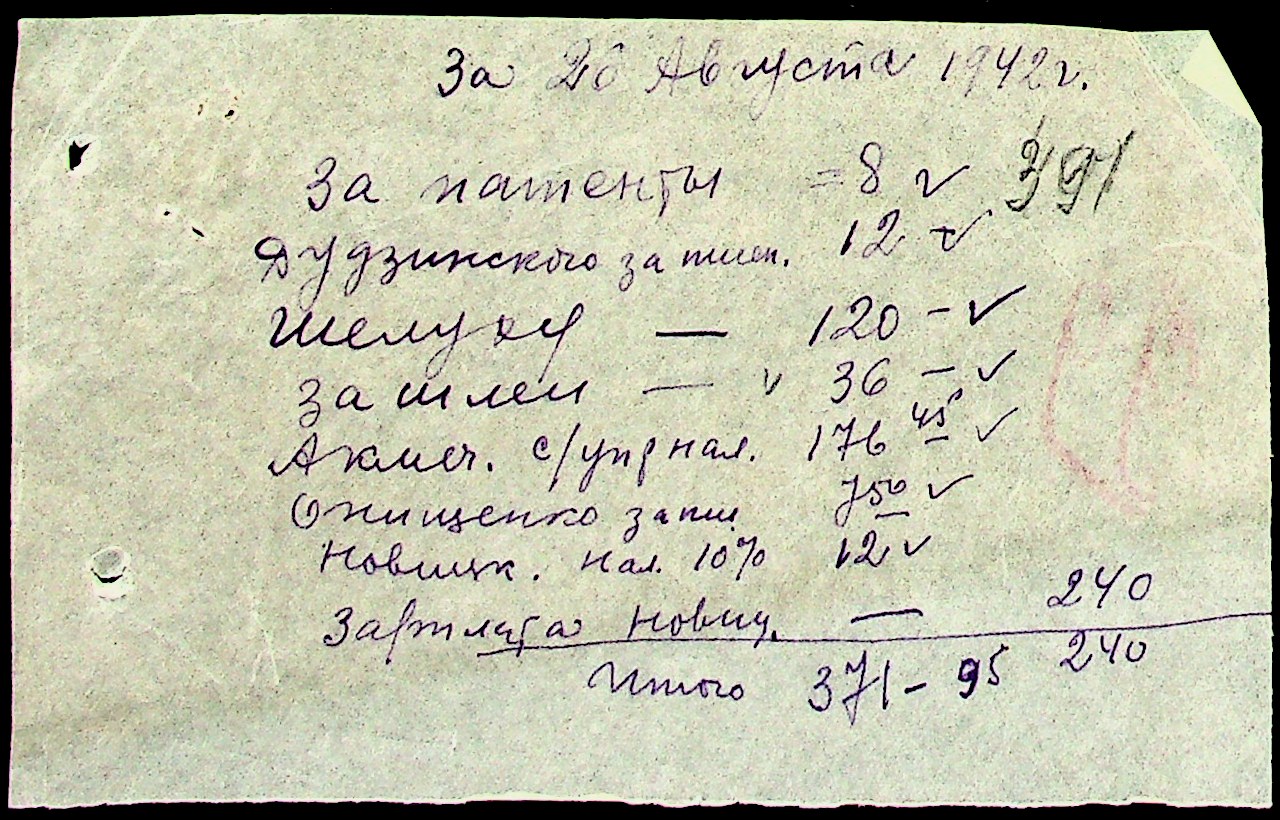 За 20 Августа 1942 г.
391
За патенты =8
Дудзинского за пшен. 12 -
Шелуху — 120 -
За шлеи — 36 -
Акмеч. с/упр нал. 176 45
Онищенко за пш. 7 50
Новицк. нал. 10% 12
Зарплата Новиц. — 240
Итого 371 - 95 240